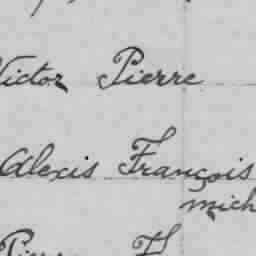 Victor Pierre
Alexis François
mich